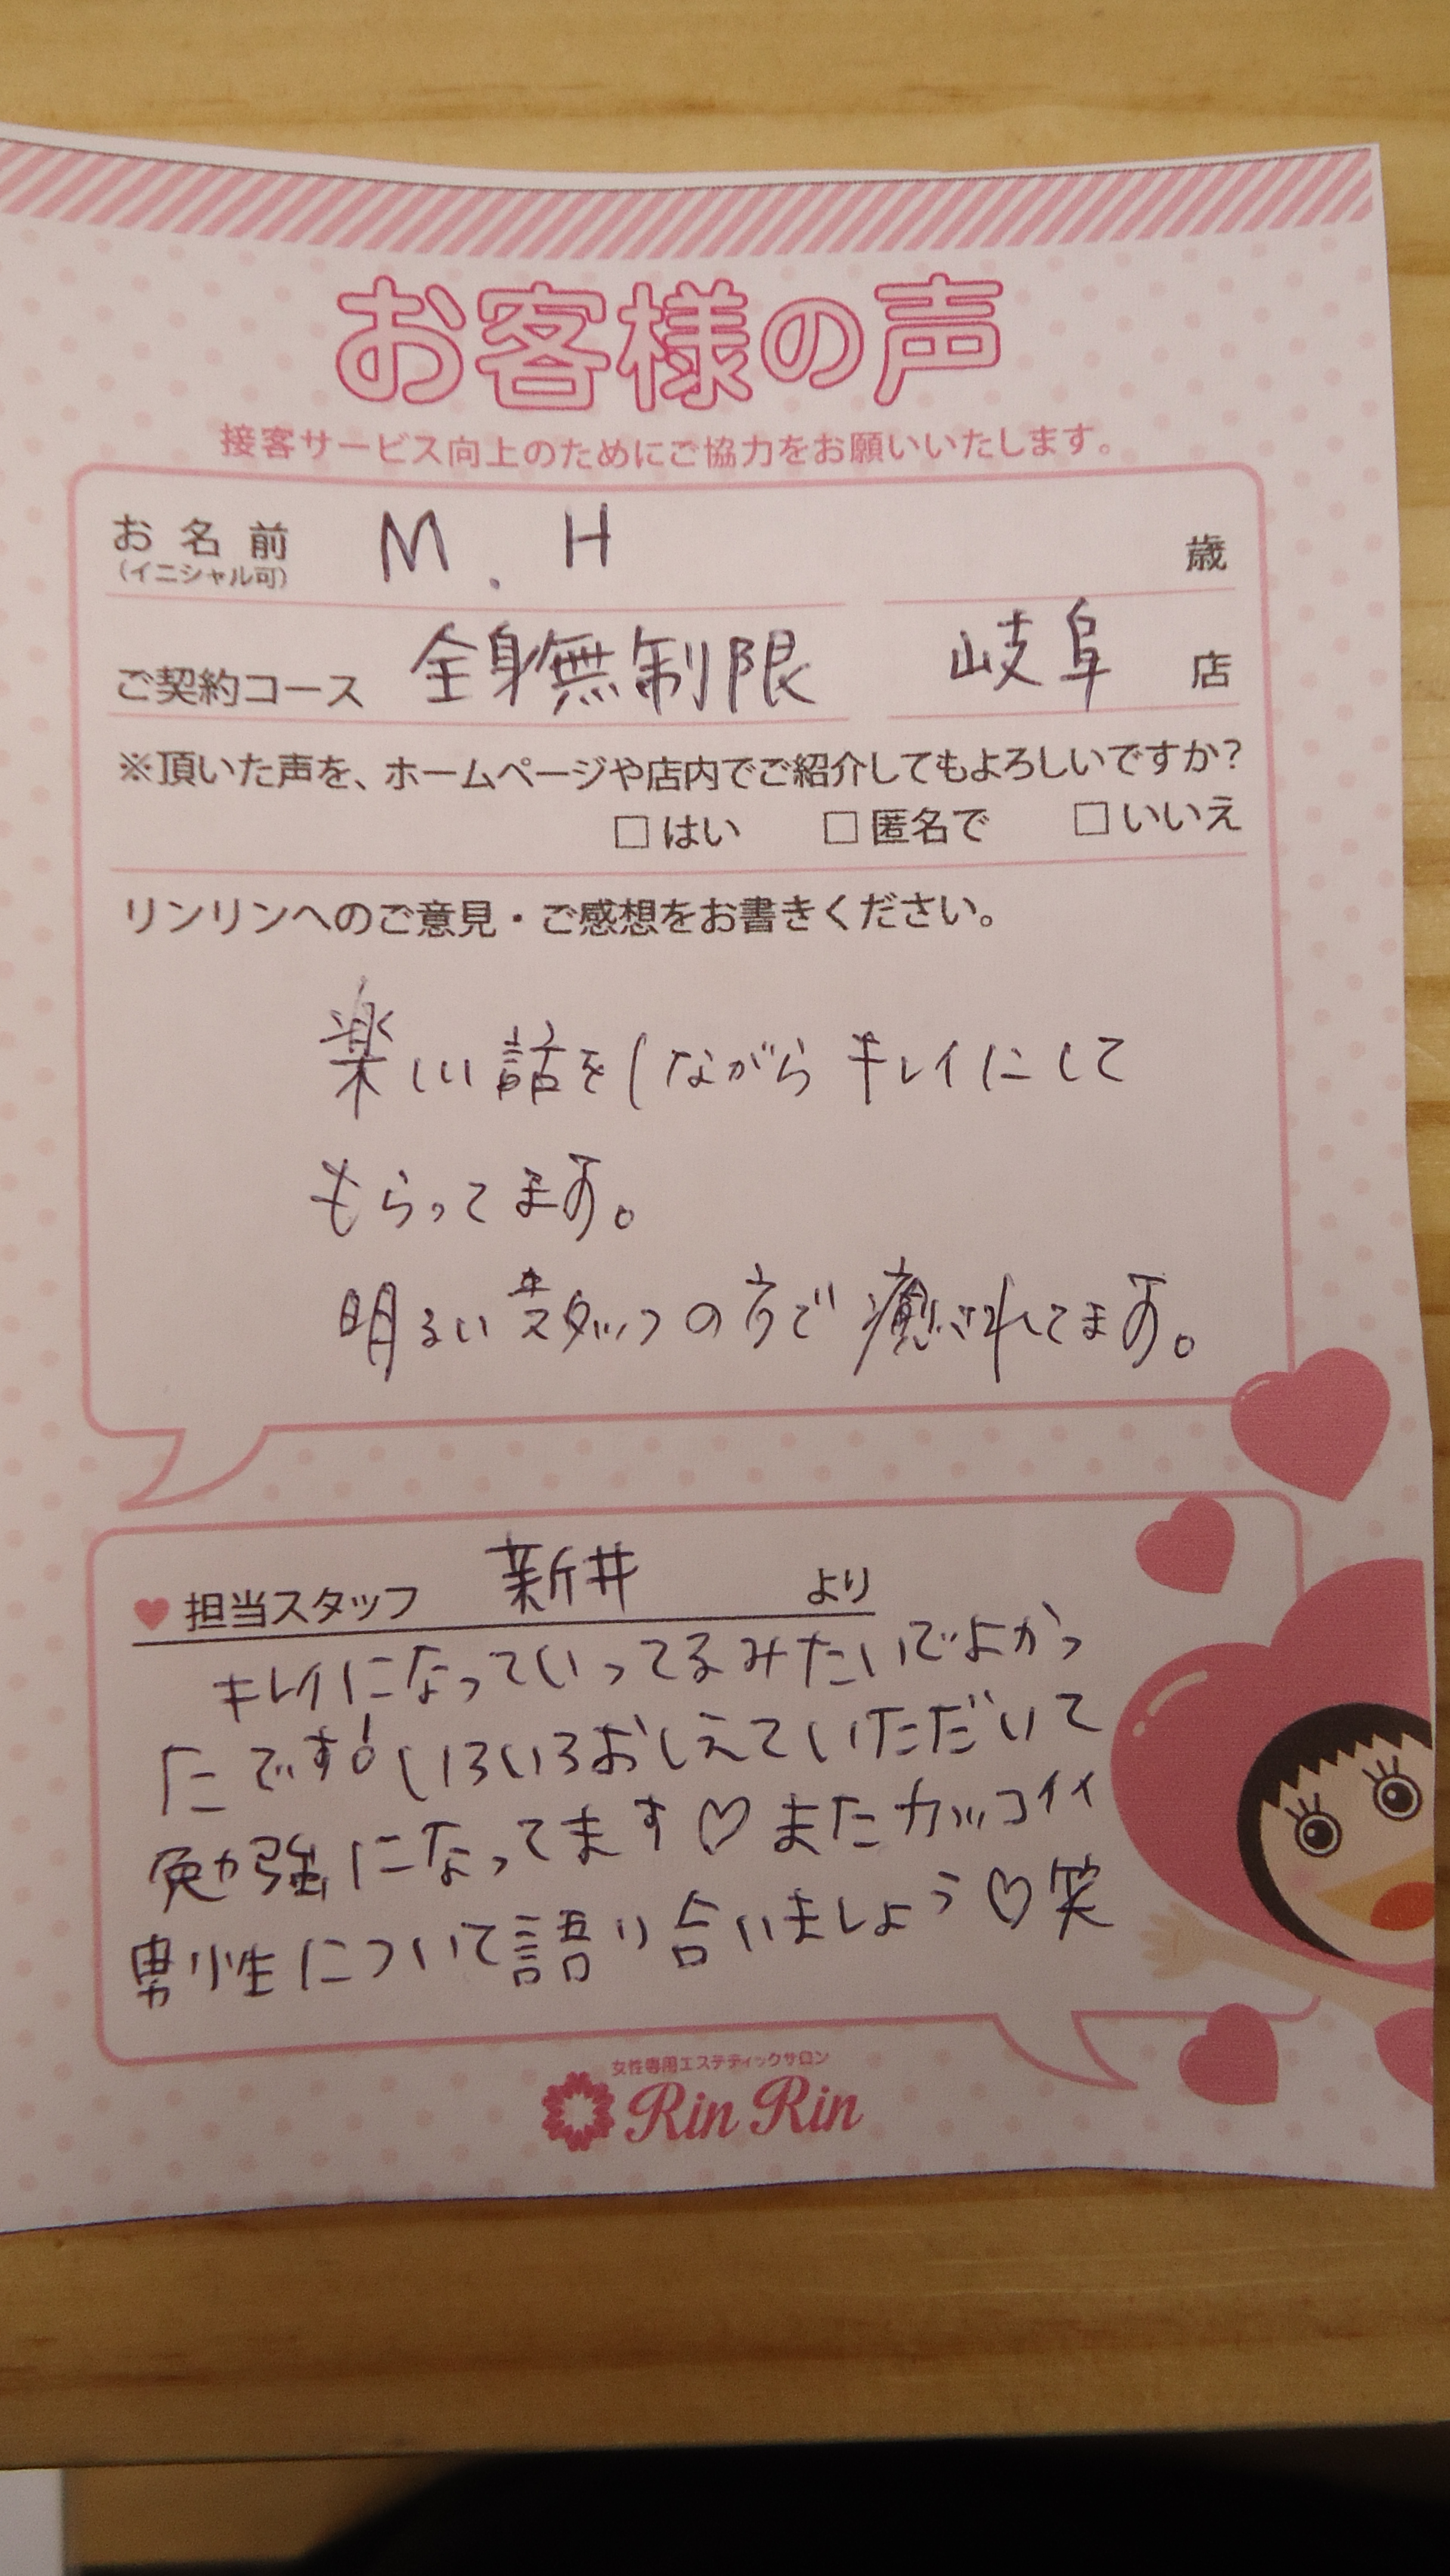 お客様の声
接客サービス向上のためにご協力をお願いいたします。
お名前 M. H 歳
(イニシャル可)
ご契約コース 全身無制限 岐阜 店
※頂いた声を、ホームページや店内でご紹介してもよろしいですか?
□はい □匿名で □いいえ
リンリンへのご意見・ご感想をお書きください。
楽しい話をしながらキレイにして
もらってます。
明るいスタッフの方で癒されてます。
♥担当スタッフ 新井 より
キレイになっていってるみたいでよかっ
たです!いろいろおしえていただいて
勉強になってます♡またカッコイイ
男性について語り合いましょう♡笑
女性専用エステティックサロン
Rin Rin